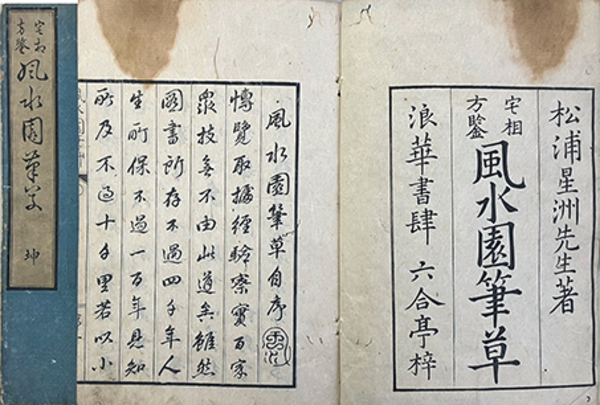 松浦星洲先生著
宅相
方鍳
風水園筆草
浪華書肆 六合亭梓
風水園筆草自序
博覽取據經驗察實百家
衆技無不由此道矣雖然
圖書所存不過四千年人
生所保不過一百年見知
所及不過十千里若以小
宅相
方鍳
風水園筆草
坤